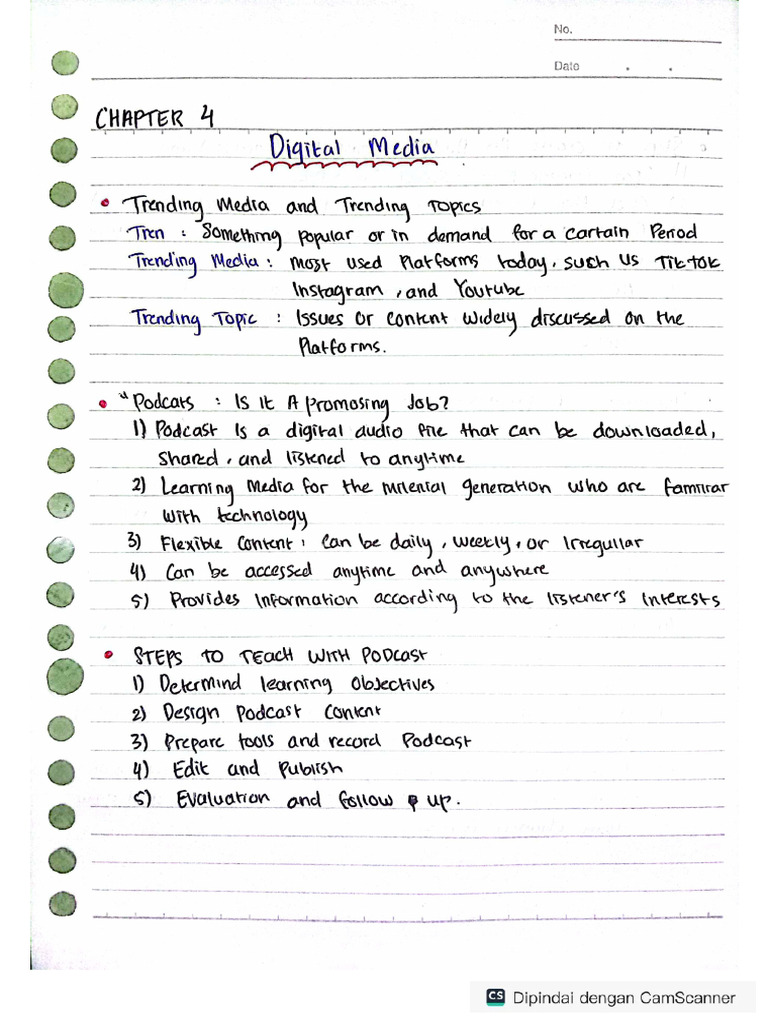 No.
Date . .
CHAPTER 4
Digital Media
• Trending Media and Trending Topics
Tren : Something popular or in demand for a cartain Period
Trending Media : Most used Platforms today, such us TikTok
Instagram, and Youtube
Trending Topic : Issues or content widely discussed on the
Platforms.
• "Podcats : Is it A promosing Job?
1) Podcast is a digital audio file that can be downloaded,
shared, and listened to anytime
2) Learning Media for the milenial generation who are familiar
with technology
3) Flexible content : can be daily, weekly, or irregullar
4) Can be accessed anytime and anywhere
5) Provides information according to the listener's interests
• STEPS TO TEACH WITH PODCAST
1) Determind learning objectives
2) Design Podcast content
3) Prepare tools and record Podcast
4) Edit and Publish
5) Evaluation and follow up.
CS Dipindai dengan CamScanner